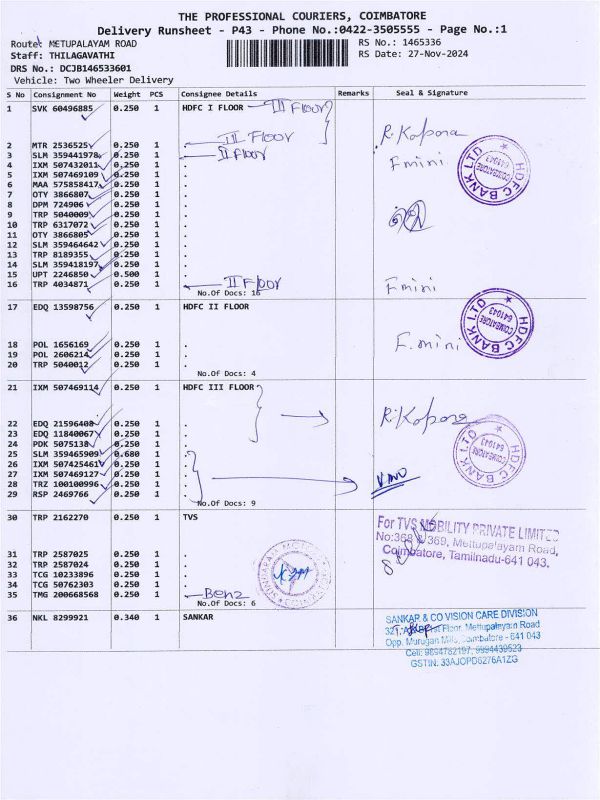 THE PROFESSIONAL COURIERS, COIMBATORE
Delivery Runsheet - P43 - Phone No.:0422-3505555 - Page No.:1
Route: METUPALAYAM ROAD
RS No.: 1465336
Staff: THILAGAVATHI
RS Date: 27-Nov-2024
DRS No.: DCJB146533601
Vehicle: Two Wheeler Delivery
S No Consignment No Weight PCS Consignee Details Remarks Seal & Signature
1 SVK 60496885 0.250 1 HDFC I FLOOR III Floor
III Floor
2 MTR 2536525 0.250 1 . R. Kopora
3 SLM 359441978 0.250 1 . II Floor
4 IXM 507432011 0.250 1 . F mini
5 IXM 507469109 0.250 1 .
6 MAA 575858417 0.250 1 .
7 OTY 3866807 0.250 1 .
8 DPM 724906 0.250 1 .
9 TRP 5040009 0.250 1 .
10 TRP 6317072 0.250 1 .
11 OTY 3866805 0.250 1 .
12 SLM 359464642 0.250 1 .
13 TRP 8189355 0.250 1 .
14 SLM 359418197 0.250 1 .
15 UPT 2246850 0.500 1 .
16 TRP 4034871 0.250 1 . II Floor F mini
No.Of Docs: 16
HDFC BANK LTD
COIMBATORE
641043
17 EDQ 13598756 0.250 1 HDFC II FLOOR
18 POL 1656169 0.250 1 . F. mini
19 POL 2606214 0.250 1 .
20 TRP 5040012 0.250 1 .
No.Of Docs: 4
HDFC BANK LTD
COIMBATORE
641043
21 IXM 507469114 0.250 1 HDFC III FLOOR
22 EDQ 21596408 0.250 1 . R. Kopora
23 EDQ 11840067 0.250 1 .
24 PDK 5075138 0.250 1 .
25 SLM 359465909 0.680 1 .
26 IXM 507425461 0.250 1 .
27 IXM 507469127 0.250 1 .
28 TRZ 100100996 0.250 1 .
29 RSP 2469766 0.250 1 .
No.Of Docs: 9
HDFC BANK LTD
COIMBATORE
641043
30 TRP 2162270 0.250 1 TVS
For TVS MOBILITY PRIVATE LIMITED
No:368 & 369, Mettupalayam Road,
Coimbatore, Tamilnadu-641 043.
31 TRP 2587025 0.250 1 .
32 TRP 2587024 0.250 1 .
33 TCG 10233896 0.250 1 .
34 TCG 50762303 0.250 1 .
35 TMG 200668568 0.250 1 . Benz
No.Of Docs: 6
36 NKL 8299921 0.340 1 SANKAR
SANKAR & CO VISION CARE DIVISION
First Floor, Mettupalayam Road
Opp. Murugan Mills, Coimbatore - 641 043
Cell: 9894782197, 9994439523
GSTIN: 33AJOPD6276A1ZG